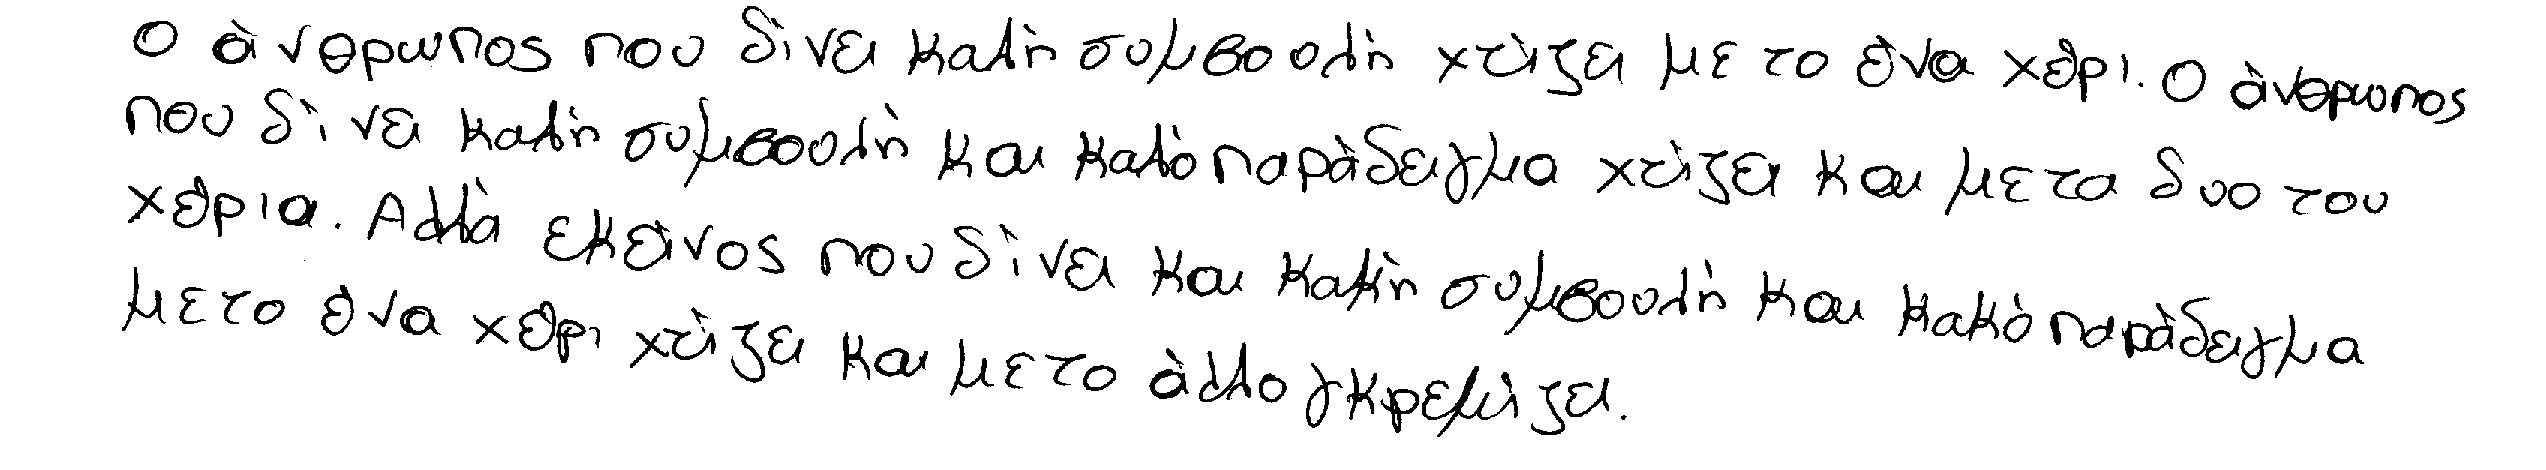 Ο άνθρωπος που δίνει καλή συμβουλή χτίζει με το ένα χέρι. Ο άνθρωπος
που δίνει καλή συμβουλή και καλό παράδειγμα χτίζει και με τα δυο του
χέρια. Αλλά εκείνος που δίνει και καλή συμβουλή και κακό παράδειγμα
με το ένα χέρι χτίζει και με το άλλο γκρεμίζει.